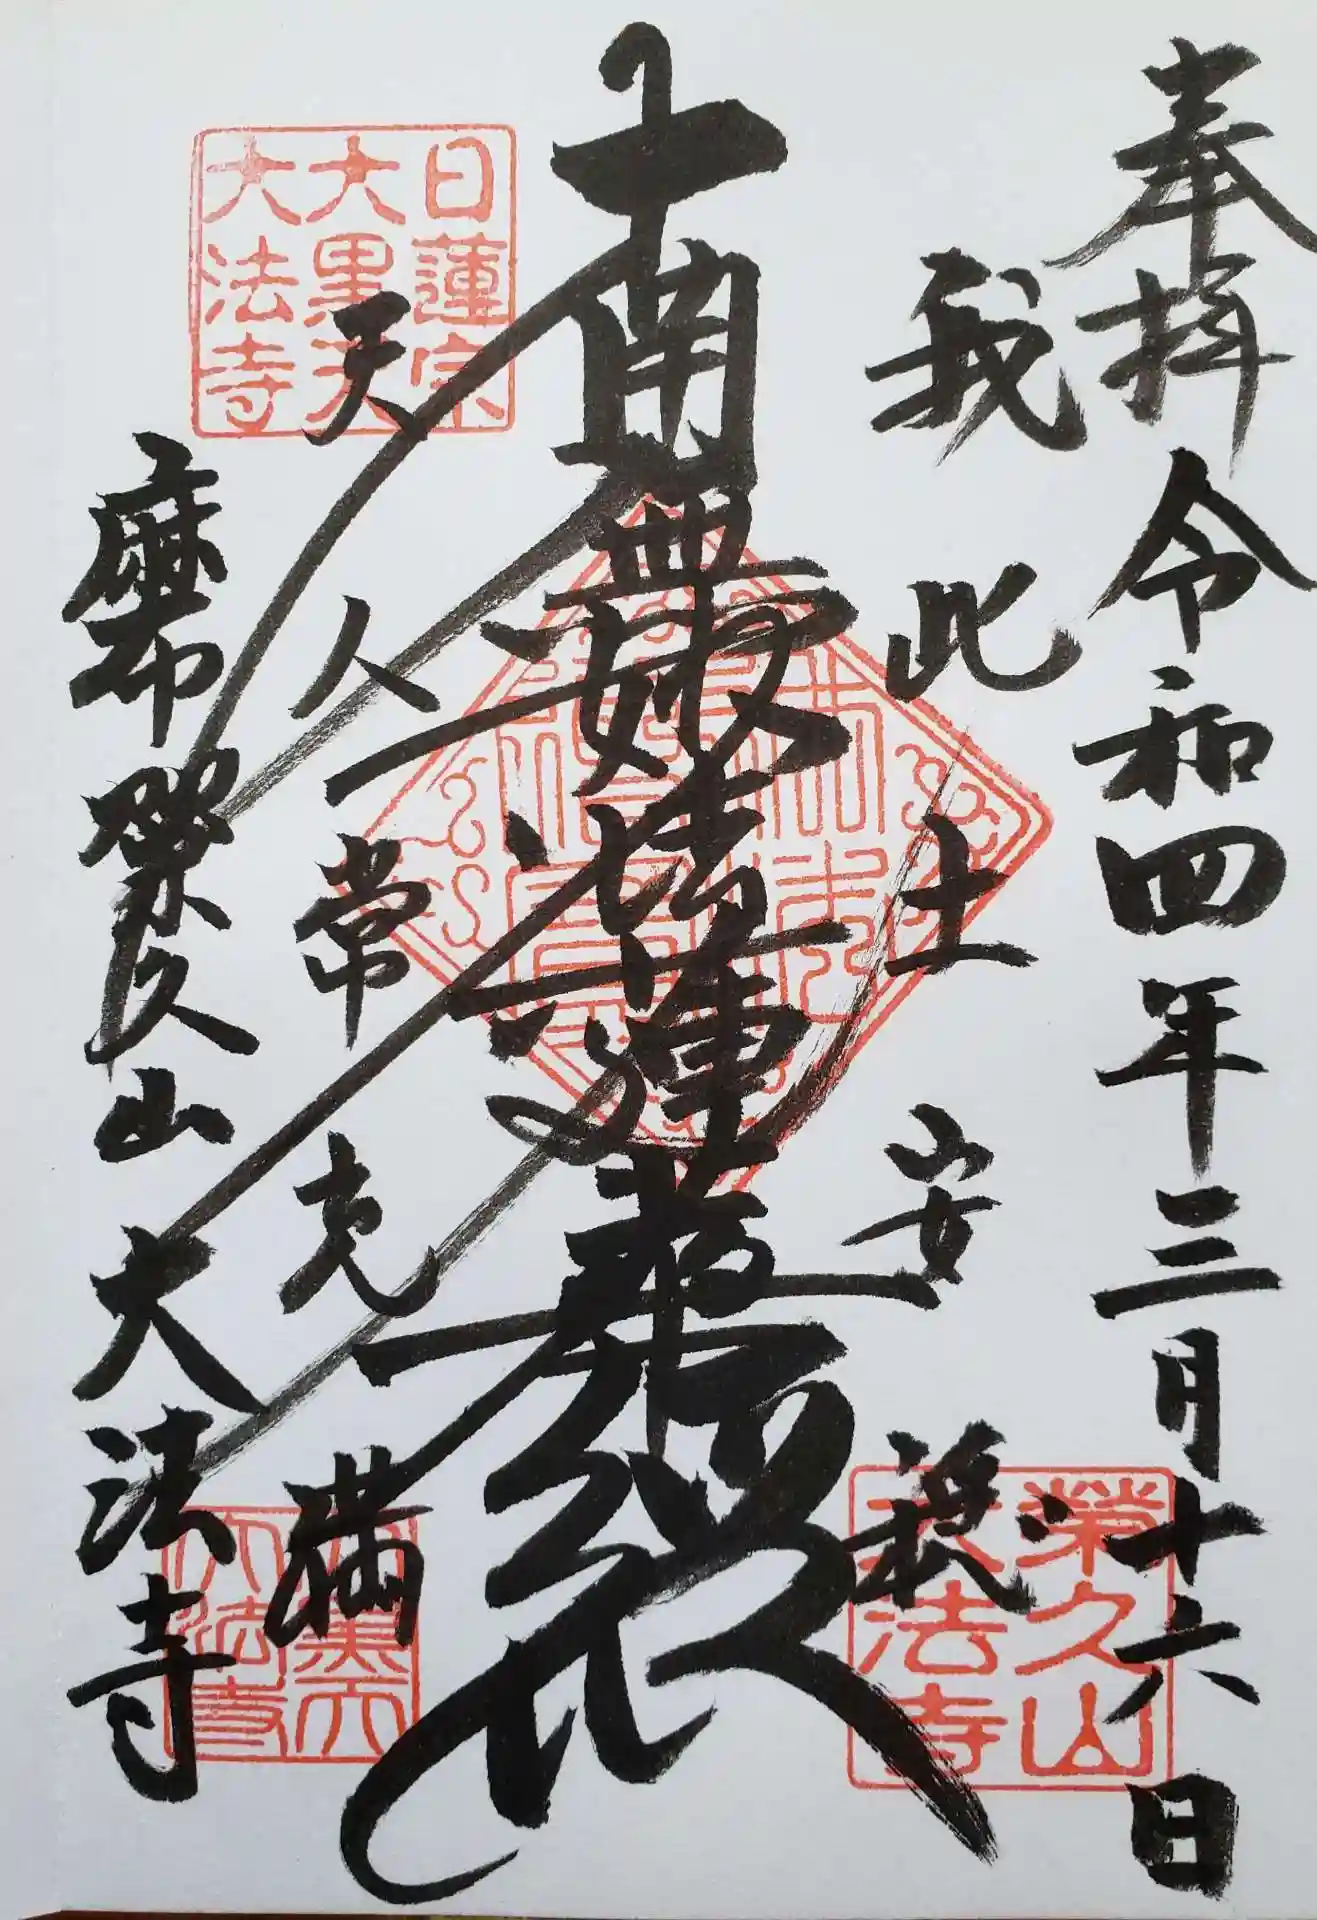 奉拝 令和四年三月十六日
我此土安穏
南無妙法蓮華経
天人常充満
麻布 榮久山 大法寺
日蓮宗
大黒天
大法寺
榮久山
大法寺
大黒天
大法寺